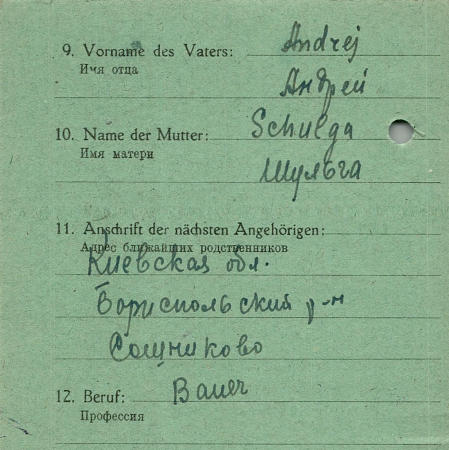 9. Vorname des Vaters: Andrej
Имя отца
Андрей
10. Name der Mutter: Schulga
Имя матери
Шульга
11. Anschrift der nächsten Angehörigen:
Адрес ближайших родственников
Киевская обл.
Бориспольский р-н
Сошниково
12. Beruf: Bauer
Профессия